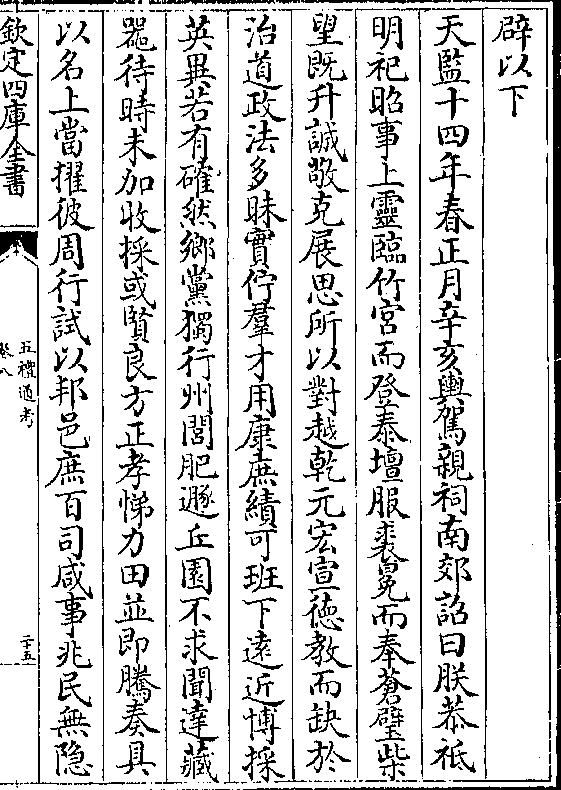 辟以下
天監十四年春正月辛亥輿駕親祠南郊詔曰朕恭祗
明祀昭事上靈臨竹宮而登泰壇服裘冕而奉蒼璧柴
望既升誠敬克展思所以對越乾元宏宣德教而缺於
治道政法多昧實佇羣才用康庶績可班下遠近博採
英異若有確然鄉黨獨行州閭肥遯丘園不求聞達藏
器待時未加收採或賢良方正孝悌力田並即騰奏具
以名上當擢彼周行試以邦邑庶百司咸事兆民無隐
欽定四庫全書
五禮通考
卷八
二十五